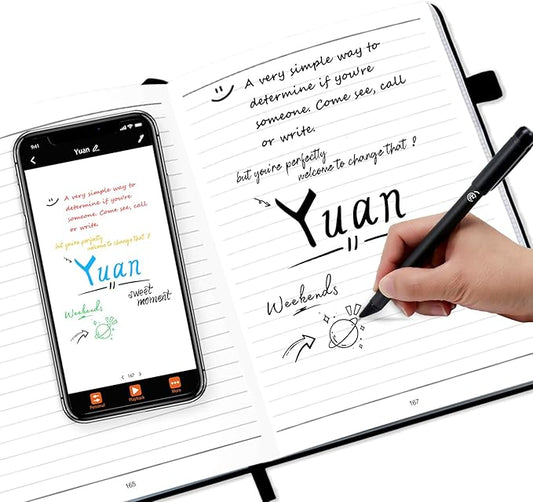 A very simple way to
determine if you're
someone. Come see, call
or write.
but you're perfectly
welcome to change that ?
Yuan
Weekends
167
9:41
Yuan
A very simple way to
determine if you're
someone. Come see, call
or write.
but you're perfectly
welcome to change that ?
Yuan
sweet
moment
Weekends
< 167 >
Personal
Playback
More
165